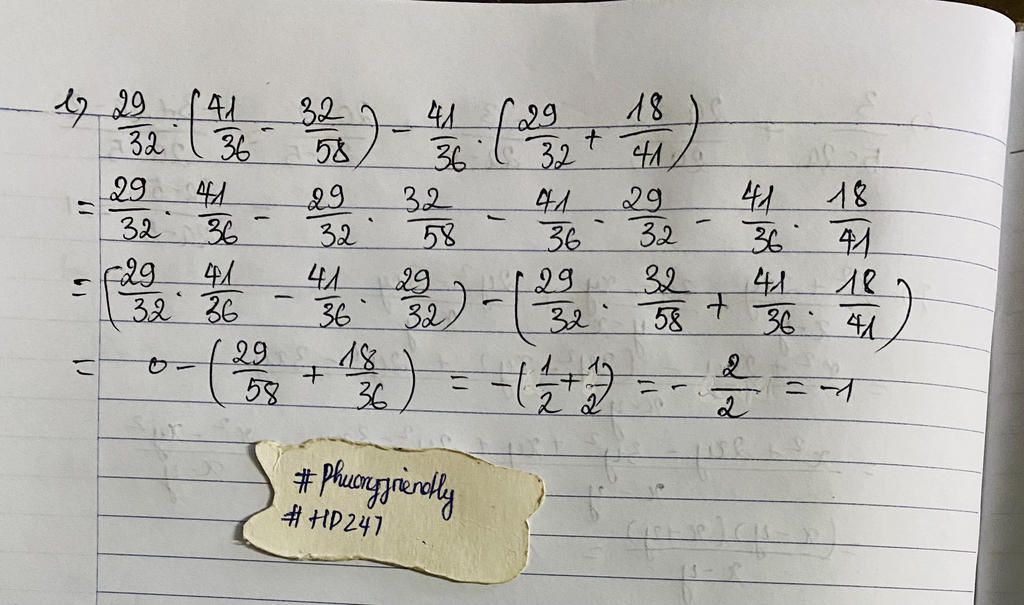 l, 29/32 . (41/36 - 32/58) - 41/36 . (29/32 + 18/41)
= 29/32 . 41/36 - 29/32 . 32/58 - 41/36 . 29/32 - 41/36 . 18/41
= (29/32 . 41/36 - 41/36 . 29/32) - (29/32 . 32/58 + 41/36 . 18/41)
= 0 - (29/58 + 18/36) = -(1/2 + 1/2) = - 2/2 = -1
# Phuongfriendly
# HD247